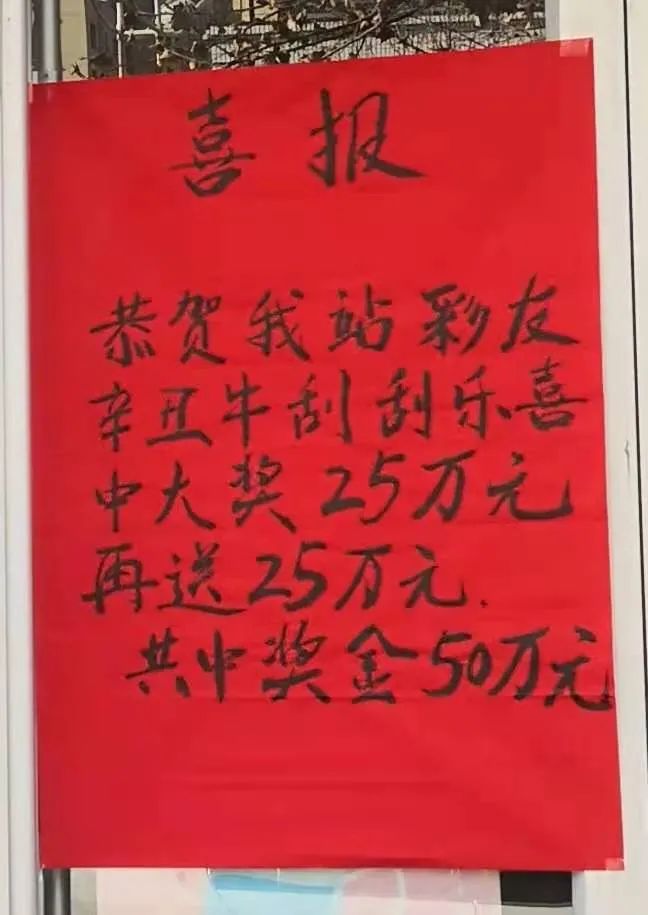 喜报
恭贺我站彩友
辛丑牛刮刮乐喜
中大奖25万元
再送25万元.
共中奖金50万元